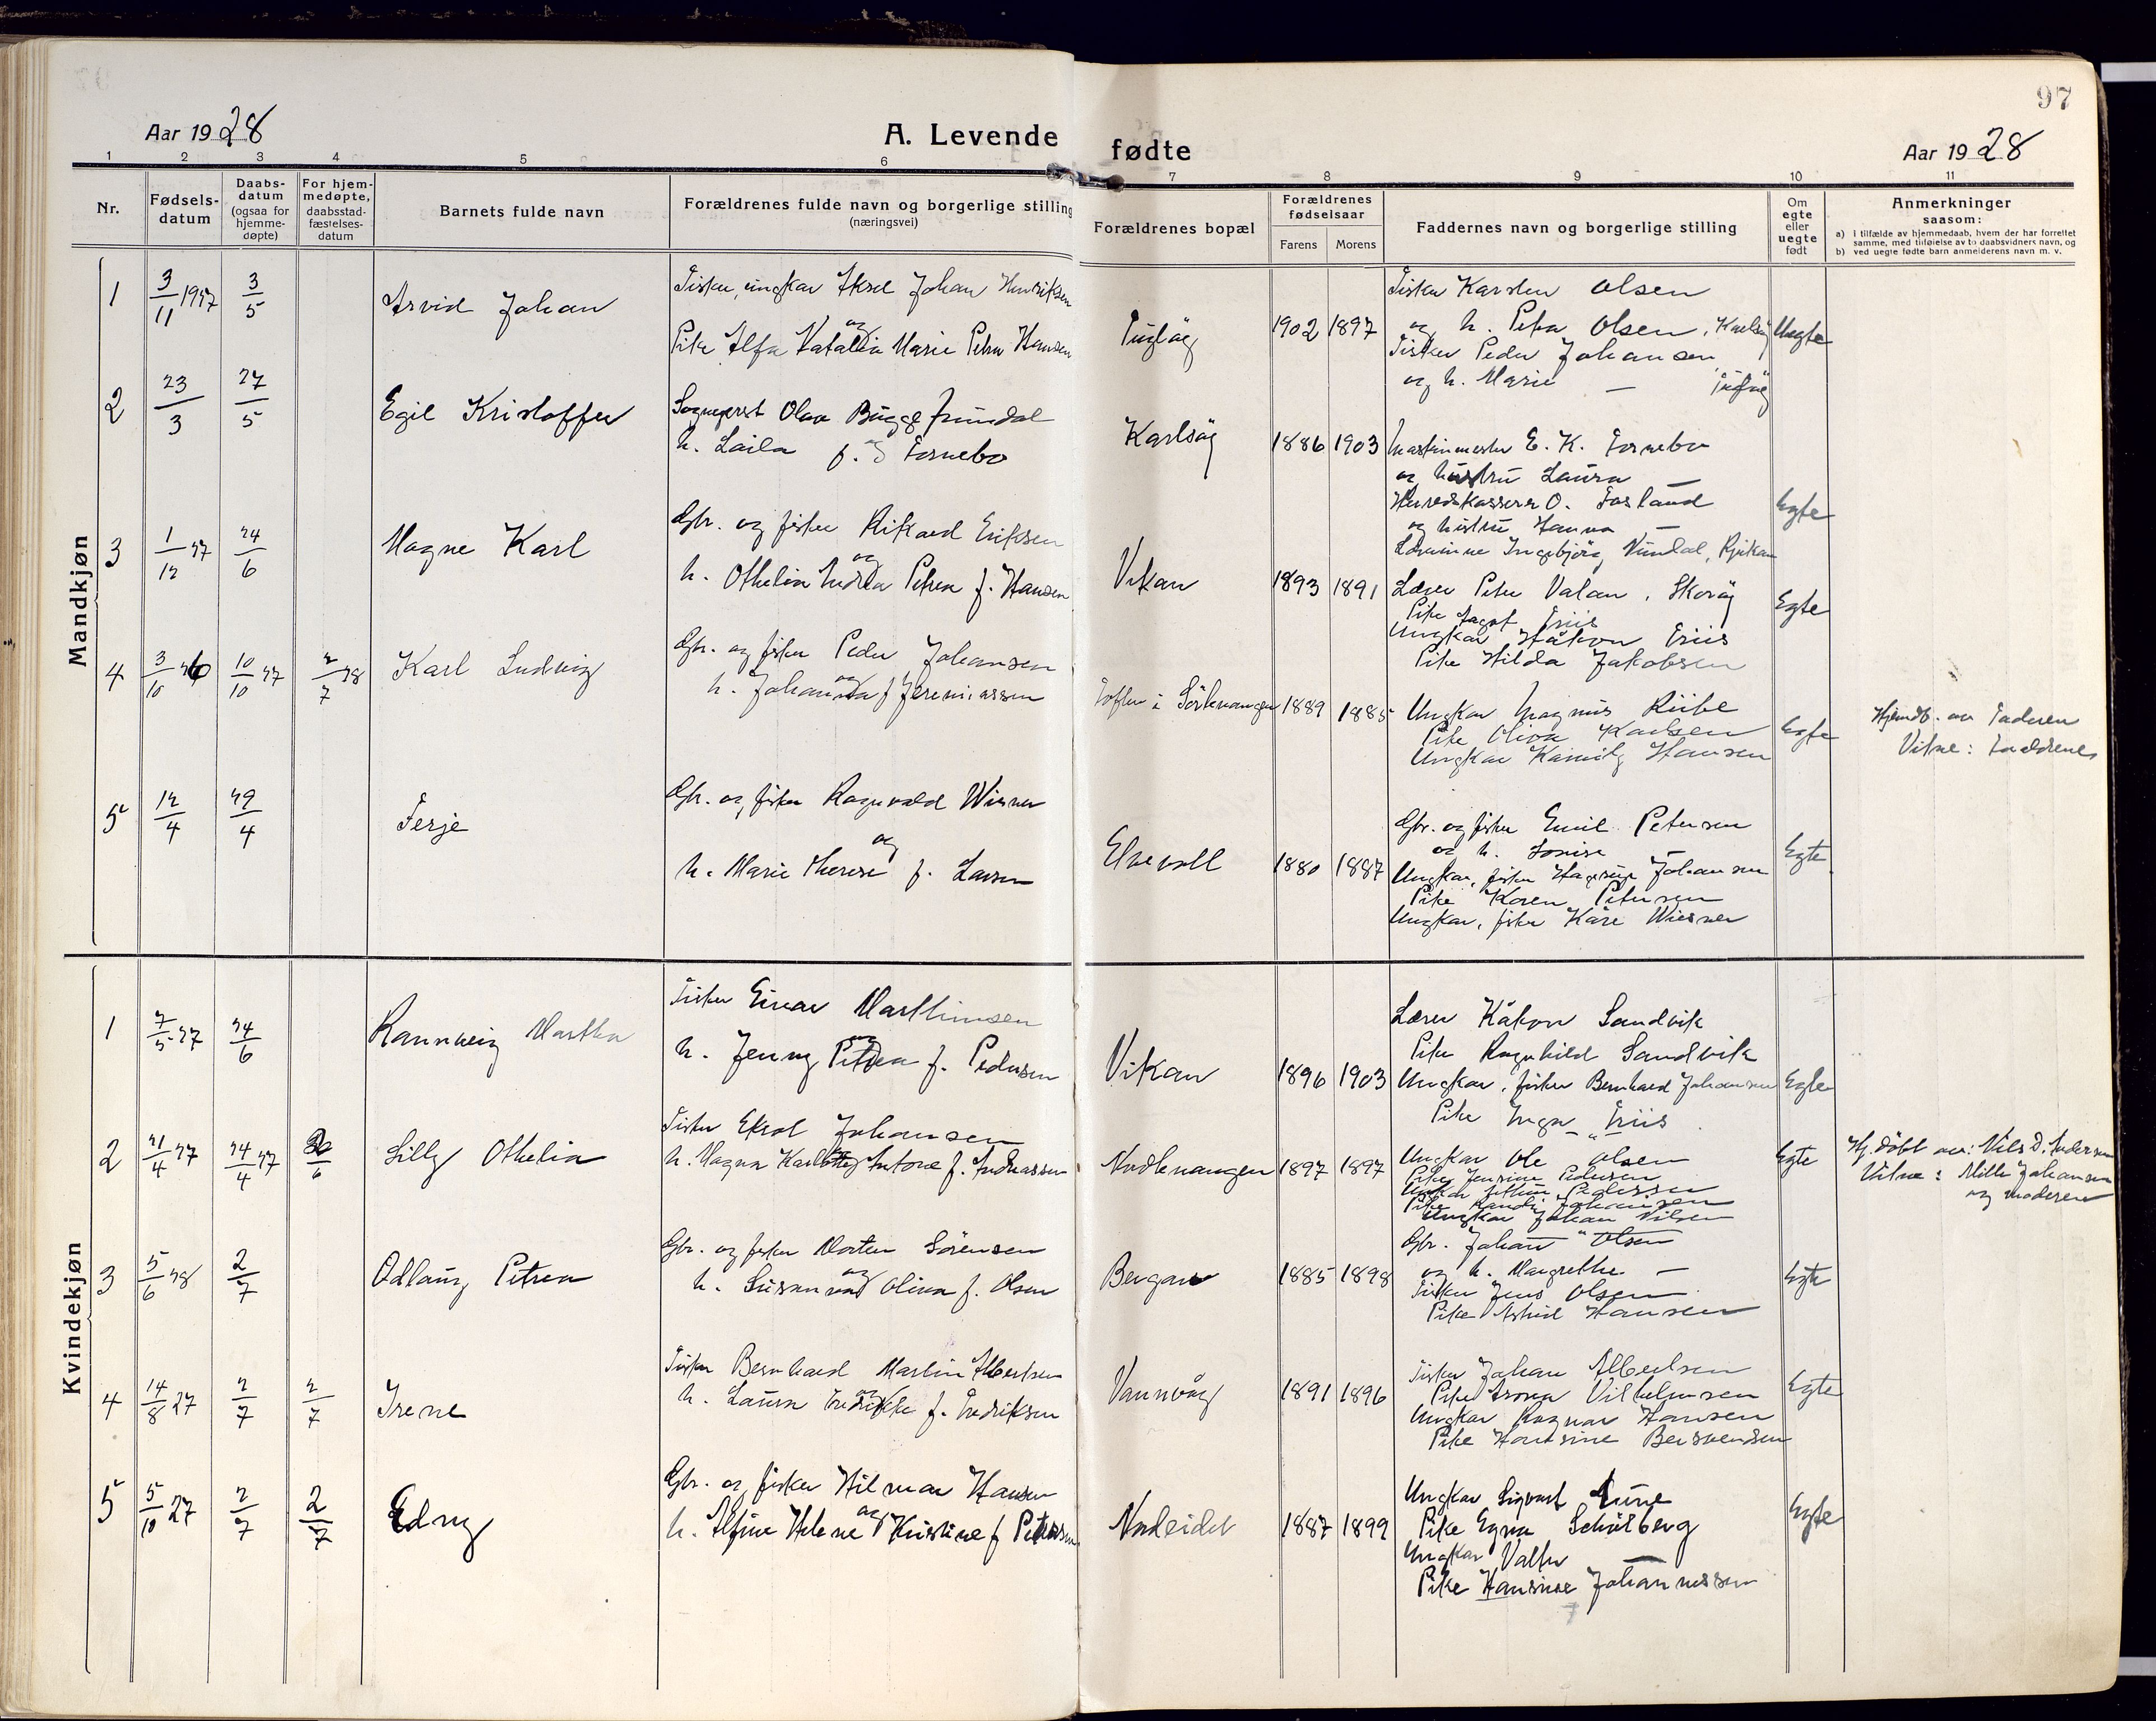 97
Aar 1928
A. Levende fødte
Aar 1928
1 2 3 4 5 6 7 8 9 10 11
Nr.
Fødsels-
datum
Daabs-
datum
(ogsaa for
hjemme-
døpte)
For hjem-
medøpte,
daabsstad-
fæstelses-
datum
Barnets fulde navn
Forældrenes fulde navn og borgerlige stilling
(næringsvei)
Forældrenes bopæl
Forældrenes
fødselsaar
Farens Morens
Faddernes navn og borgerlige stilling
Om
egte
eller
uegte
født
Anmerkninger
saasom:
a) I tilfælde av hjemmedaab, hvem der har forrettet
samme, med tilføielse av to daabsvidners navn, og
b) ved uegte fødte barn anmelderens navn m. v.
Mandkjøn
1 3/11 1927 3/5 Arvid Johan
Fisker, ungkar Aksel Johan Henriksen
og
Pike Alfa Natalia Marie Petra Hansen
1902 1897
Fisker Karsten Olsen
og h. Petra Olsen, Karlsøy
Fisker Peder Johansen
og h. Marie —
Uegte
2 23/3 27/5 Egil Kristoffer
Sogneprest Olav Bugge
og
h. Laila f. Fornebo
Karlsøy
1886 1903
Maskinmester E. K. Fornebo
og hustru Laura —
Herredskasserer O. Fosland
og hustru Hanna —
Lærerinne Ingebjörg Rjukan
Egte
3 1/12 27 24/6 Magne Karl
Gbr. og fisker Rikard Eriksen
og
h. Othelia Andrea Petrea f. Hansen
Vikan
1893 1891
Lærer Peter Valan,
Pike Friis
Ungkar Håkon Friis
Pike Hilda Jakobsen
Egte
4 3/10 10/10 27 2/7 28 Karl Ludvig
Gbr. og fisker Peder Johansen
og
h. Johanna f Jeremiassen
i Sörlenangen
1889 1885
Ungkar Magnus Riibe
Pike Oliva Karlsen
Ungkar Hansen
Egte
Hjemdb. av Faderen
Vitne: Forældrene
5 12/4 29/4 Terje
Gbr. og fisker Ragnvald Wisner
og
h. Marie Therese f. Larsen
Elvevoll
1880 1887
Gbr. og fisker Emil Petersen
og h. Lovise —
Ungkar, fisker Johansen
Pike Karen Petersen
Ungkar, fisker Kåre Wiesner
Egte
Kvindekjøn
1 7/5 27 24/6 Rannveig Martha
Fisker Einar Marthinsen
og
h. Jenny Petrea f. Pedersen
Vikan
1896 1903
Lærer Håkon Sandvik
Pike Ragnhild Sandvik
Ungkar, fisker Bernhard Johansen
Pike Inga Friis
Egte
2 21/4 27 24/4 27 Lilly Othelia
Fisker Johansen
h. Magna Antone f. Andreassen
Nordlenangen
1897 1897
Ungkar Ole Olsen
Pike Jensine Pedersen
Ungkar Pedersen
Pike Johansen
Ungkar Johan Nilsen
Egte
Hj. döbt av: Nils D. Andersen
Vitne: Milli Johansen
og moderen
3 5/6 28 2/7 Odlaug Petrea
Gbr. og fisker Morten Sörensen
og
h. Susanna Olina f. Olsen
1885 1898
Gbr. Johan Olsen
og h. Margrethe —
Fisker Jens Olsen
Pike Astrid Hansen
Egte
4 14/8 27 2/7 2/7 Irene
Fisker Bernhard Martin Albertsen
og
h. Laura Fredrikke f. Fredriksen
Vannvåg
1891 1896
Fisker Johan Albertsen
Pike Vilhelmsen
Ungkar Ragnar Hansen
Pike Hansine Bersvendsen
Egte
5 5/10 27 2/7 2/7 Edny
Gbr. og fisker Hilmar Hansen
og
h. Alfine Helene Kristine f
Nordeidet
1887 1899
Ungkar Sigvart
Pike Egna
Ungkar Valter —
Pike Hansine Johannessen
Egte